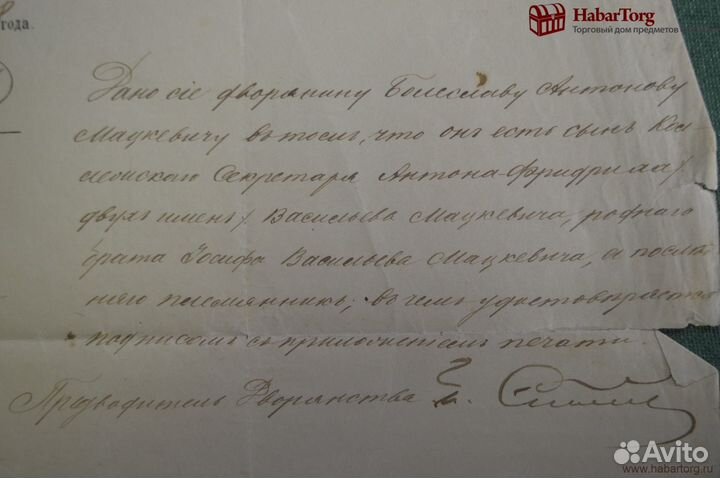 HabarTorg
Торговый дом предметов
года.
Дано сіе дворянину Болеславу Антонову
Мацкевичу въ томъ, что онъ есть сынъ Кол-
лежскаго Секретаря Антона-Фридриха /
двухъ именъ / Васильева Мацкевича, роднаго
брата Іосифа Васильева Мацкевича, а послѣд-
няго племянникъ; въ чемъ удостовѣряется
подписомъ съ приложеніемъ печати.
Предводитель Дворянства
Avito
www.habartorg.ru